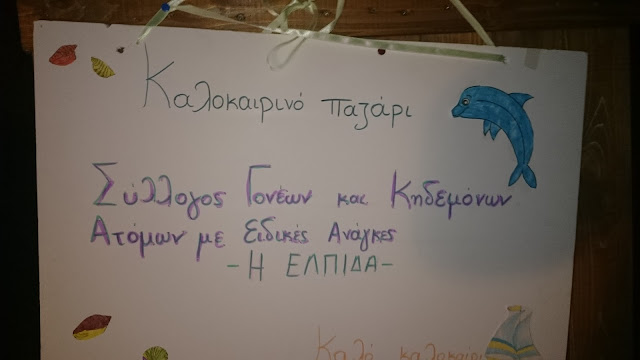 Καλοκαιρινό παζάρι
Σύλλογος Γονέων και Κηδεμόνων
Ατόμων με Ειδικές Ανάγκες
- Η ΕΛΠΙΔΑ -
Καλό καλοκαίρι